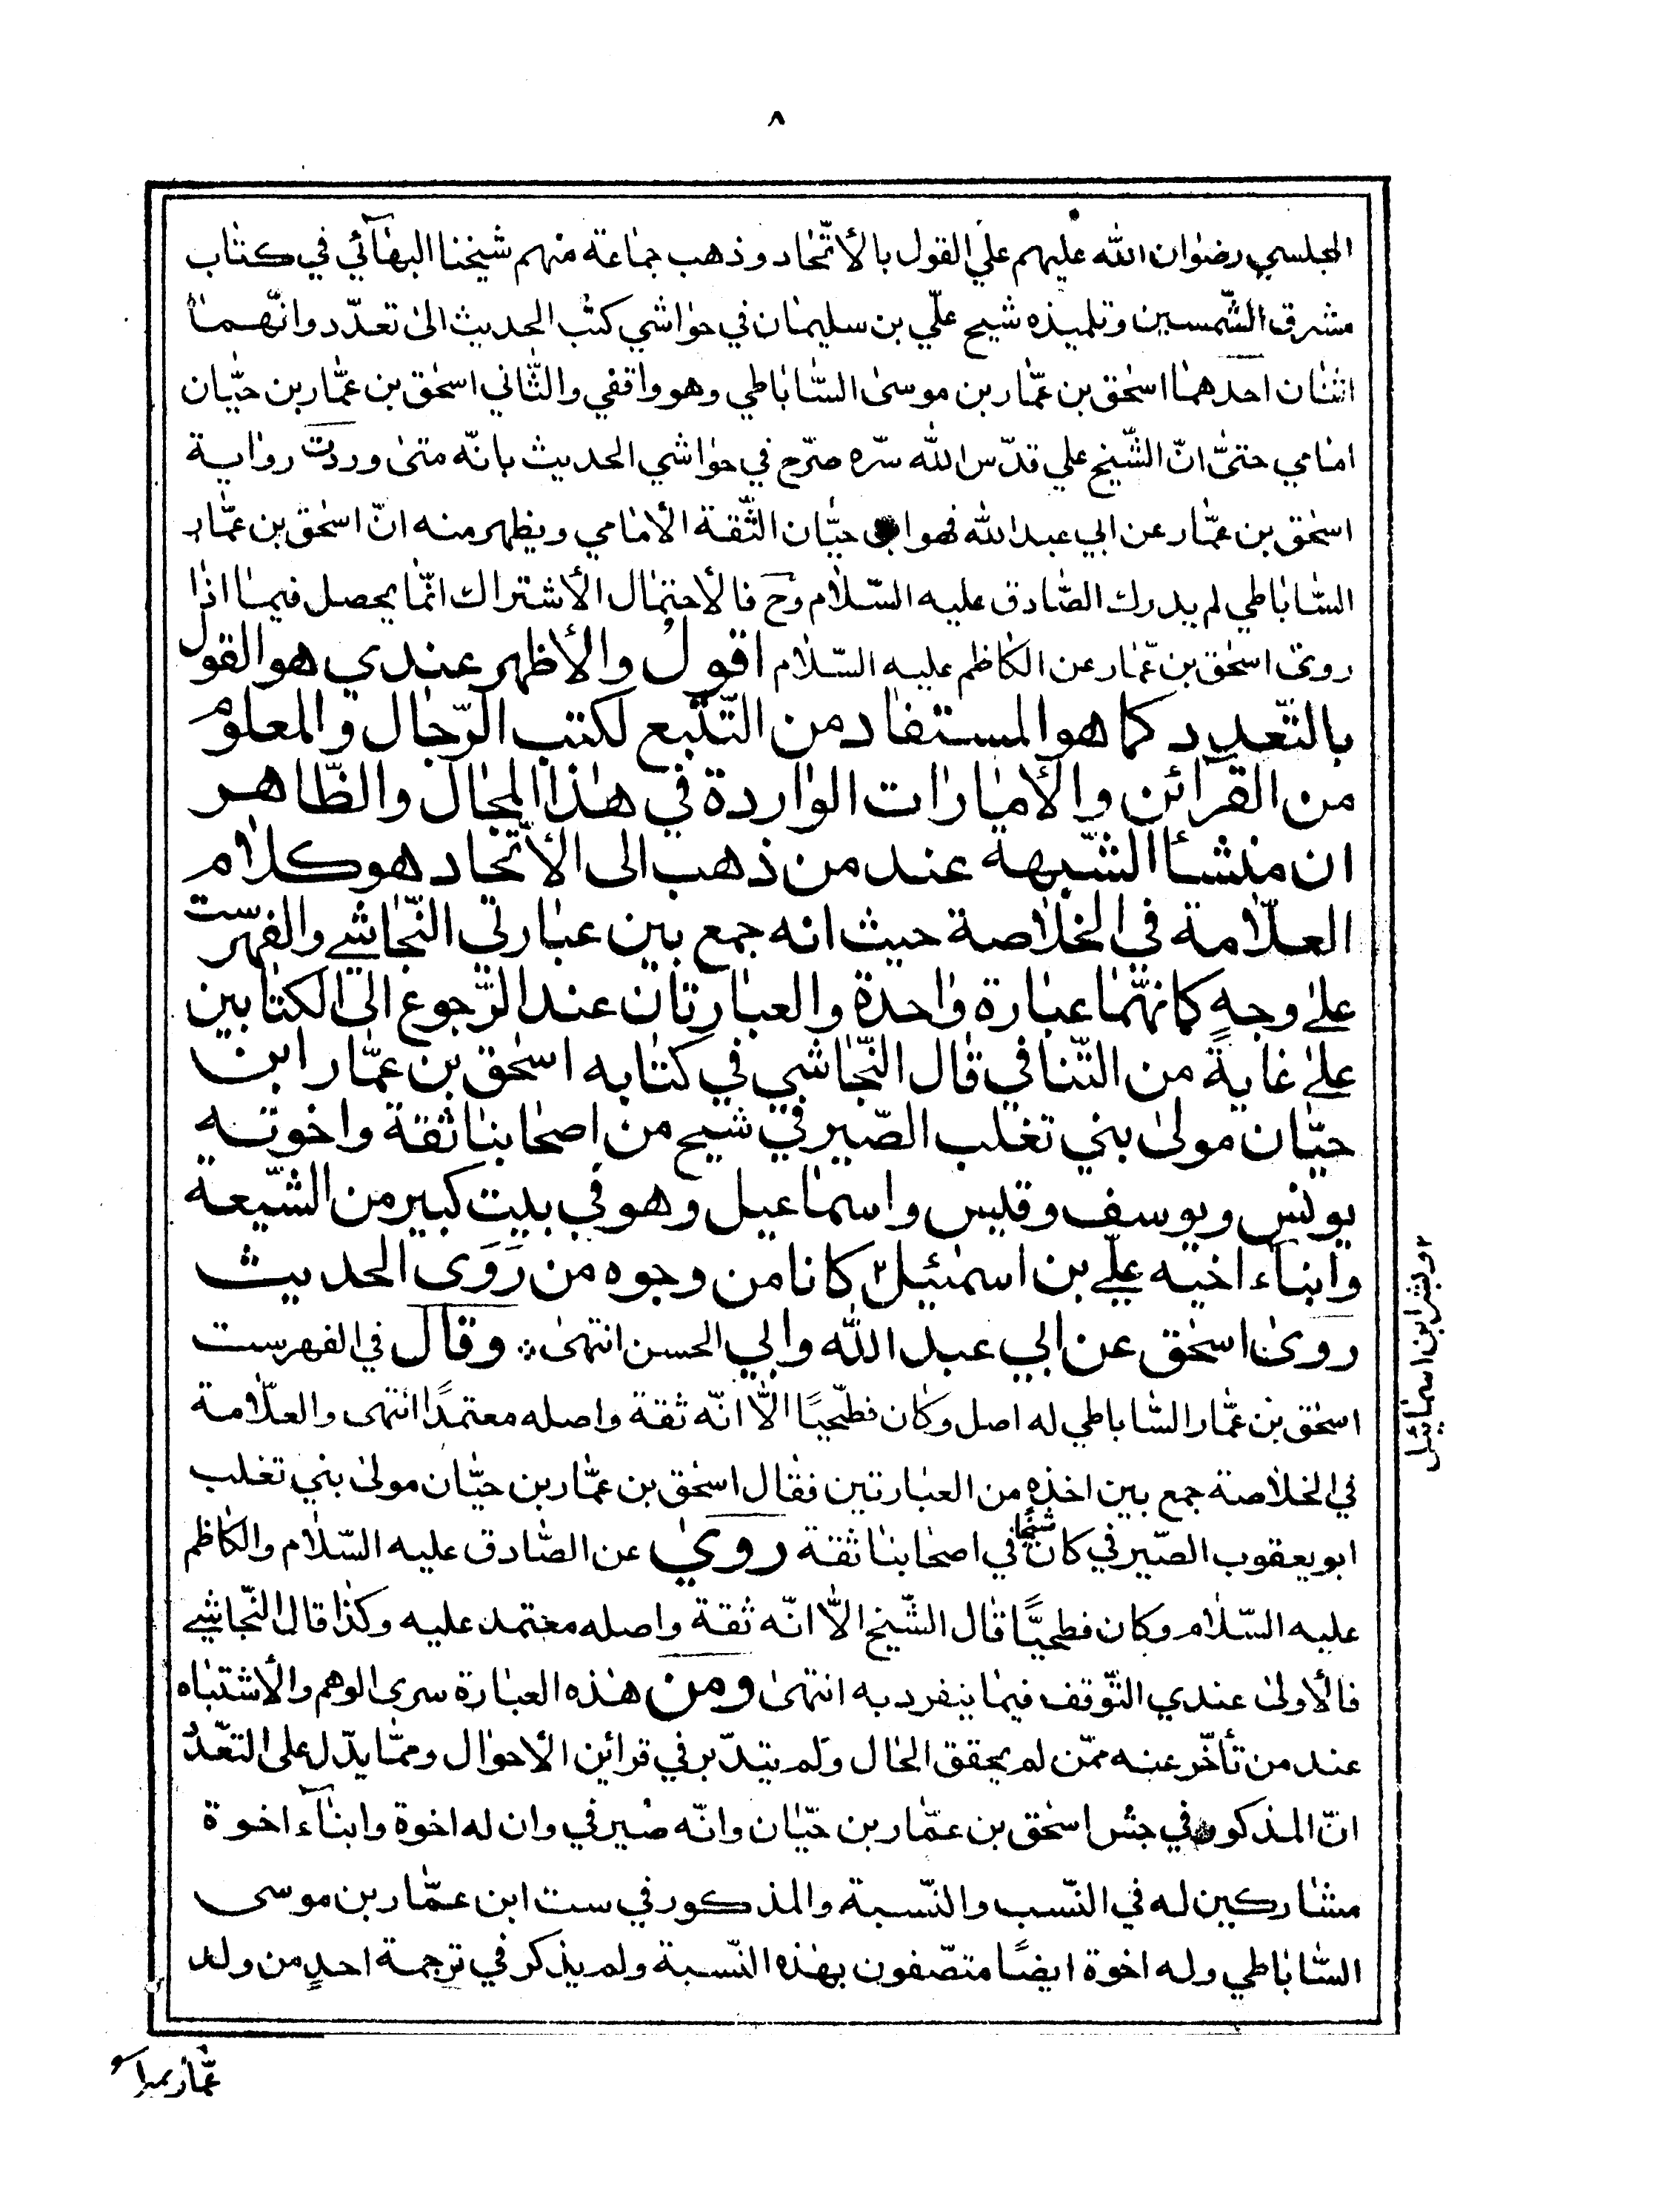 ٨
المجلسي رضوان الله عليهم علي القول بالأتّحاد وذهب جماعة منهم شيخنا البهآئي في كتاب
مشرق الشّمسين وتلميذه شيح علّي بن سليمان في حواشي كتب الحديث الى تعدّد وانّهما
اثنان احدهما اسحق بن عمّار بن موسى السّاباطي وهو واقفي والثّاني اسحق بن عمّار بن حيّان
امامي حتىّ انّ الشّيخ علي قدّس الله سّره صرّح في حواشي الحديث بانّه متى وردت رواية
اسحق بن عمّار عن ابي عبد الله فهو ابن حيّان الثّقة الأمامي ويظهر منه انّ اسحق بن عمّار
السّاباطي لم يدرك الصّادق عليه السّلام وَحَ فالأحتمال الأشتراك انّما يحصل فيما اذا
روى اسحق بن عّمار عن الكاظم عليه السّلام اقول والأظهر عندي هو القول
بالتّعدد كما هو المستفاد من التّتبع لكتب الرّجال والمعلوم
من القرآئن والأمارات الواردة في هذا المجال والظّاهر
ان منشأ الشّبهة عند من ذهب الى الأتّحاد هو كلام
العلّامة في الخلاصة حيث انه جمع بين عبارتي النّجاشي والفهرست
على وجهٍ كانهّما عبارة واحدة والعبارتان عند الرّجوع الى الكتابين
على غايةً من التّنافي قال النّجاشي في كتابه اسحق بن عمّار ابن
حيّان مولى بني تغلب الصّيرفي شيح من اصحابنا ثقة واخوته
يونس ويوسف وقيس واسماعيل وهو في بيت كبير من الشّيعة
وابناء اخيه علّي بن اسمٰئيل٢ كانا من وجوه من رَوَى الحديث
٢ وبشر ابن اسمائيل
روى اسحق عن ابي عبد الله وابي الحسن انتهى؞ وقال في الفهرست
اسحق بن عمّار السّاباطي له اصل وكان فطّحيًا الّا انّه ثقة واصله معتمدًا انتهى والعلّامة
في الخلاصة جمع بين اخذه من العبارتين فقال اسحق بن عمّار بن حيّان مولى بني تغلب
ابو يعقوب الصّيرفي كان شيخًا في اصحابنا ثقة روى عن الصّادق عليه السّلام والكاظم
عليه السّلام وكان فطحيًّا قال الشّيخ الّا انّه ثقة واصله معتمد عليه وكذا قال النّجاشي
فالأولى عندي التّوقف فيما ينفرد به انتهى ومن هذه العبارة سرى الوهم والأشتباه
عند من تأخّر عنه ممّن لم يحقق الحال ولم يتدّبر في قراين الأحوال وممّا يدّل على التعّدد
انّ المذكور في جش اسحق بن عمّار بن حيّان وانّه صيرفي وان له اخوة وابنآء اخوة
مشاركين له في النّسب والنّسبة والمذكور في ست ابن عمّار بن موسى
السّاباطي وله اخوة ايضًا متصّفون بهذه النّسبة ولم يذكر في ترجمة احدٍ من ولد